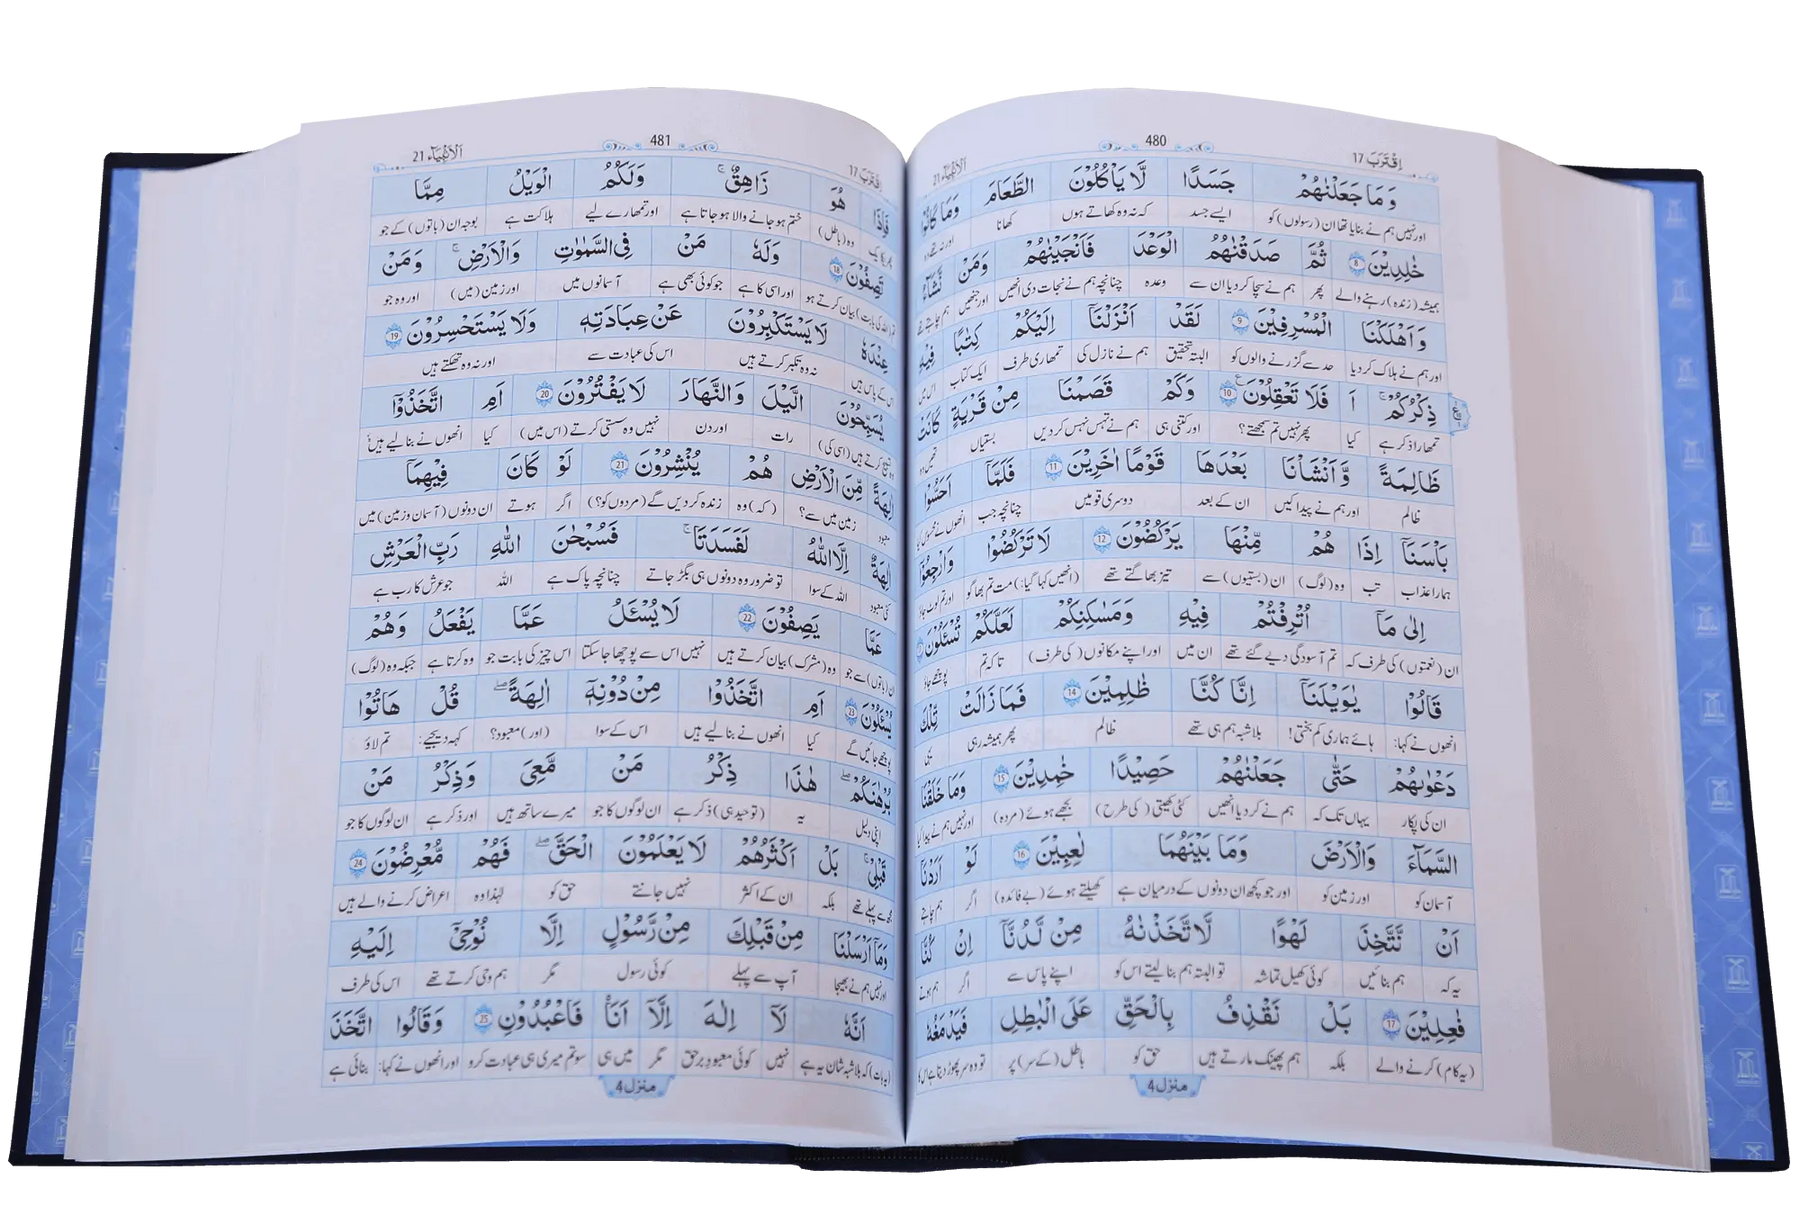 اِقْتَرَبَ 17
480
اَلْاَنْۢبِيَآء 21
وَمَا جَعَلْنٰهُمْ جَسَدًا لَّا يَاْكُلُوْنَ الطَّعَامَ وَمَا كَانُوْا
اور نہیں ہم نے بنایا تھا ان (رسولوں) کو ایسے جسد کہ نہ وہ کھاتے ہوں کھانا اور نہ تھے وہ
خٰلِدِيْنَ 8 ثُمَّ صَدَقْنٰهُمُ الْوَعْدَ فَاَنْجَيْنٰهُمْ وَمَنْ نَّشَآءُ
ہمیشہ (زندہ) رہنے والے پھر ہم نے سچا کر دیا ان سے وعدہ چنانچہ ہم نے نجات دی انھیں اور جنھیں ہم چاہتے تھے
وَاَهْلَكْنَا الْمُسْرِفِيْنَ 9 لَقَدْ اَنْزَلْنَآ اِلَيْكُمْ كِتٰبًا فِيْهِ
اور ہم نے ہلاک کر دیا حد سے گزرنے والوں کو البتہ تحقیق ہم نے نازل کی تمھاری طرف ایک کتاب اس میں
ذِكْرُكُمْ ۚ اَ فَلَا تَعْقِلُوْنَ 10 وَكَمْ قَصَمْنَا مِنْ قَرْيَةٍ كَانَتْ
تمھارا ذکر ہے کیا پھر نہیں تم سمجھتے؟ اور کتنی ہی ہم نے تہس نہس کر دیں بستیاں تھیں وہ
ظَالِمَةً وَّاَنْشَاْنَا بَعْدَهَا قَوْمًا اٰخَرِيْنَ 11 فَلَمَّآ اَحَسُّوْا
ظالم اور ہم نے پیدا کیں ان کے بعد دوسری قومیں چنانچہ جب انھوں نے محسوس کیا
بَاْسَنَآ اِذَا هُمْ مِّنْهَا يَرْكُضُوْنَ 12 لَا تَرْكُضُوْا وَارْجِعُوْٓا
ہمارا عذاب تب وہ (لوگ) ان (بستیوں) سے تیز بھاگتے تھے (انھیں کہا گیا:) مت تم بھاگو اور تم لوٹ جاؤ
اِلٰى مَآ اُتْرِفْتُمْ فِيْهِ وَمَسٰكِنِكُمْ لَعَلَّكُمْ تُسْـَٔلُوْنَ
ان (نعمتوں) کی طرف کہ تم آسودگی دیے گئے تھے ان میں اور اپنے مکانوں (کی طرف) تاکہ تم پوچھے جاؤ
قَالُوْا يٰوَيْلَنَآ اِنَّا كُنَّا ظٰلِمِيْنَ 14 فَمَا زَالَتْ تِّلْكَ
انھوں نے کہا: ہائے ہماری کم بختی! بلاشبہ ہم ہی تھے ظالم پھر ہمیشہ رہی یہی
دَعْوٰىهُمْ حَتّٰى جَعَلْنٰهُمْ حَصِيْدًا خٰمِدِيْنَ 15 وَمَا خَلَقْنَا
ان کی پکار یہاں تک کہ ہم نے کر دیا انھیں کٹی کھیتی (کی طرح) بجھے ہوئے (مردہ) اور نہیں ہم نے پیدا کیا
السَّمَآءَ وَالْاَرْضَ وَمَا بَيْنَهُمَا لٰعِبِيْنَ 16 لَوْ اَرَدْنَآ
آسمان کو اور زمین کو اور جو کچھ ان دونوں کے درمیان ہے کھیلتے ہوئے (بے فائدہ) اگر ہم چاہتے
اَنْ نَّتَّخِذَ لَهْوًا لَّاتَّخَذْنٰهُ مِنْ لَّدُنَّآ اِنْ كُنَّا
یہ کہ ہم بنائیں کوئی کھیل تماشہ تو البتہ ہم بنا لیتے اس کو اپنے پاس سے اگر ہم ہوتے
فٰعِلِيْنَ 17 بَلْ نَقْذِفُ بِالْحَقِّ عَلَى الْبٰطِلِ فَيَدْمَغُهٗ
(یہ کام) کرنے والے بلکہ ہم پھینک مارتے ہیں حق کو باطل (کے سر) پر تو وہ سر پھوڑ دیتا ہے اس کا
منزل 4
اِقْتَرَبَ 17
481
اَلْاَنْۢبِيَآء 21
فَاِذَا هُوَ زَاهِقٌ ۚ وَلَكُمُ الْوَيْلُ مِمَّا
وہ (باطل) ختم ہو جانے والا ہو جاتا ہے اور تمھارے لیے ہلاکت ہے بوجہ ان (باتوں) کے جو
تَصِفُوْنَ 18 وَلَهٗ مَنْ فِى السَّمٰوٰتِ وَالْاَرْضِ ۚ وَمَنْ
بیان کرتے ہو اور اسی کا ہے جو کوئی بھی ہے آسمانوں میں اور زمین (میں) اور وہ جو
عِنْدَهٗ لَا يَسْتَكْبِرُوْنَ عَنْ عِبَادَتِهٖ وَلَا يَسْتَحْسِرُوْنَ 19
اس کے پاس ہیں نہ وہ تکبر کرتے ہیں اس کی عبادت سے اور نہ وہ تھکتے ہیں
يُسَبِّحُوْنَ الَّيْلَ وَالنَّهَارَ لَا يَفْتُرُوْنَ 20 اَمِ اتَّخَذُوْٓا
کرتے ہیں (اسی کی) رات اور دن نہیں وہ سستی کرتے (اس میں) کیا انھوں نے بنا لیے ہیں
اٰلِهَةً مِّنَ الْاَرْضِ هُمْ يُنْشِرُوْنَ 21 لَوْ كَانَ فِيْهِمَآ
معبود زمین میں سے؟ (کہ) وہ زندہ کر دیں گے (مردوں کو؟) اگر ہوتے ان دونوں (آسمان و زمین) میں
اٰلِهَةٌ اِلَّا اللّٰهُ لَفَسَدَتَا ۚ فَسُبْحٰنَ اللّٰهِ رَبِّ الْعَرْشِ
کئی معبود اللہ کے سوا تو ضرور وہ دونوں ہی بگڑ جاتے چنانچہ پاک ہے اللہ جو عرش کا رب ہے
عَمَّا يَصِفُوْنَ 22 لَا يُسْـَٔلُ عَمَّا يَفْعَلُ وَهُمْ
ان (باتوں) سے جو وہ (مشرک) بیان کرتے ہیں نہیں اس سے پوچھا جا سکتا اس چیز کی بابت جو وہ کرتا ہے جبکہ وہ (لوگ)
يُسْـَٔلُوْنَ 23 اَمِ اتَّخَذُوْا مِنْ دُوْنِهٖٓ اٰلِهَةً ؕ قُلْ هَاتُوْا
پوچھے جائیں گے کیا انھوں نے بنا لیے ہیں اس کے سوا (اور) معبود؟ کہہ دیجیے: تم لاؤ
بُرْهٰنَكُمْ ۚ هٰذَا ذِكْرُ مَنْ مَّعِىَ وَذِكْرُ مَنْ
اپنی دلیل یہ (توحید ہی) ذکر ہے ان لوگوں کا جو میرے ساتھ ہیں اور ذکر ہے ان لوگوں کا جو
قَبْلِىْ ؕ بَلْ اَكْثَرُهُمْ لَا يَعْلَمُوْنَ الْحَقَّ فَهُمْ مُّعْرِضُوْنَ 24
مجھ سے پہلے تھے بلکہ ان کے اکثر نہیں جانتے حق کو لہٰذا وہ اعراض کرنے والے ہیں
وَمَآ اَرْسَلْنَا مِنْ قَبْلِكَ مِنْ رَّسُوْلٍ اِلَّا نُوْحِىْٓ اِلَيْهِ
اور نہیں ہم نے بھیجا آپ سے پہلے کوئی رسول مگر ہم وحی کرتے تھے اس کی طرف
اَنَّهٗ لَآ اِلٰهَ اِلَّآ اَنَا۠ فَاعْبُدُوْنِ 25 وَقَالُوا اتَّخَذَ
کہ بلاشبہ شان یہ ہے نہیں کوئی معبود برحق مگر میں ہی سو تم میری ہی عبادت کرو اور انھوں نے کہا: بنائی ہے
منزل 4